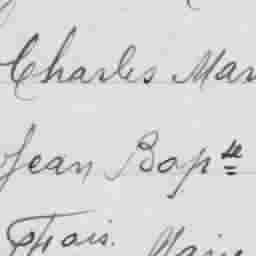 Charles Mar
Jean Bapte
Frais.